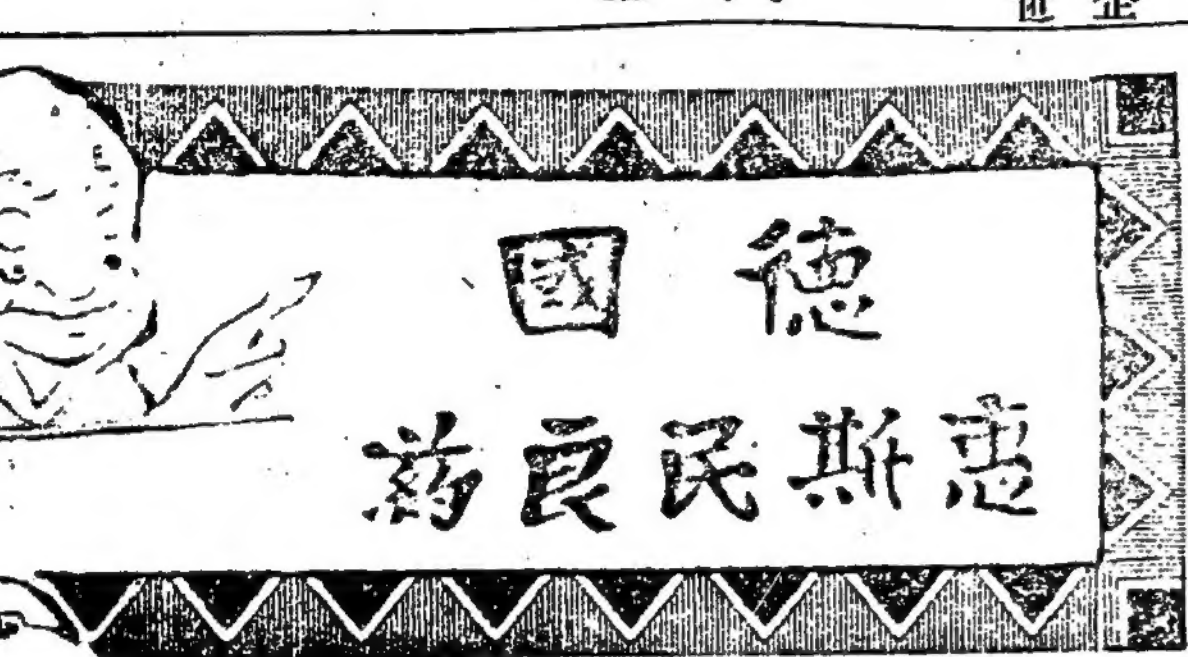 德國
惠斯民良药